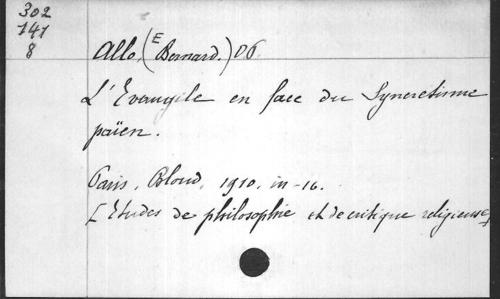 302
141
8
Allo, (E Bernard.) O6.
L'Evangile en face du Syncretisme
païen.
Paris, Bloud, 1910. in-16.
[Etudes de philosophie et de critique religieuse]